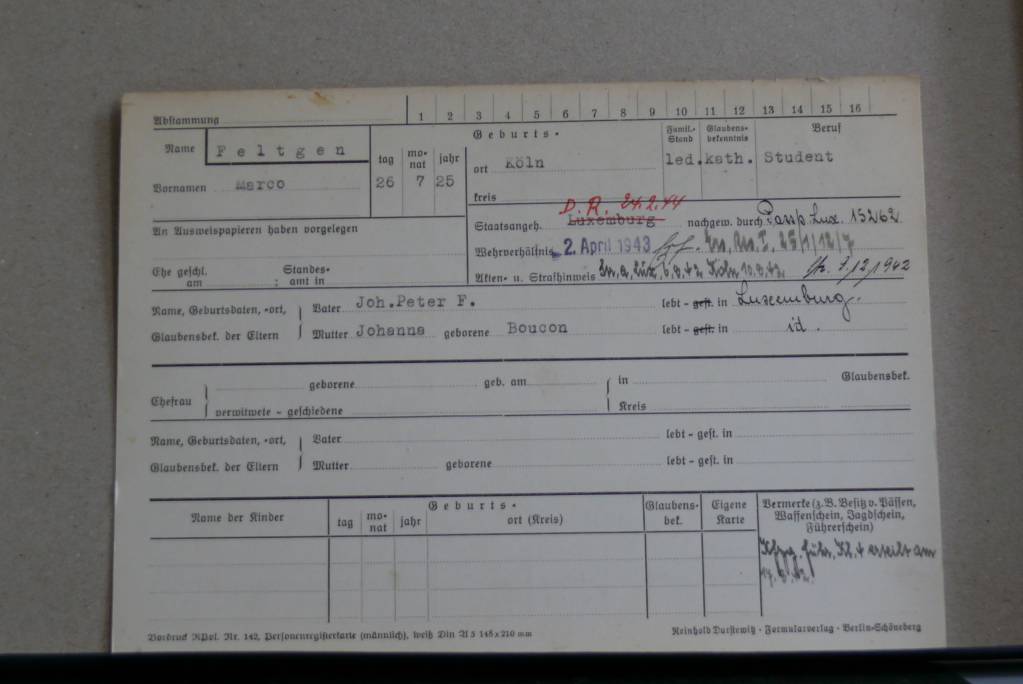 Abstammung 1 2 3 4 5 6 7 8 9 10 11 12 13 14 15 16
Name Feltgen
Geburts-
tag monat jahr ort Köln
Famil.-Stand Glaubensbekenntnis Beruf
led. kath. Student
Vornamen Marco 26 7 25
kreis
D. R. 24.2.44
Staatsangeh. Luxemburg nachgew. durch Passp. Lux. 15262
An Ausweispapieren haben vorgelegen
Wehrverhältnis 2. April 1943 Ers. Res. I. 25/1/12/7
Ehe geschl. am ; Standesamt in
Akten- u. Strafhinweis Köln 10.9.42. 7/12/1942
Name, Geburtsdaten, -ort, Vater Joh.Peter F. lebt - gest. in Luxemburg.
Glaubensbek. der Eltern Mutter Johanna geborene Boucon lebt - gest. in id.
Ehefrau geborene geb. am in Glaubensbek.
verwitwete - geschiedene Kreis
Name, Geburtsdaten, -ort, Vater lebt - gest. in
Glaubensbek. der Eltern Mutter geborene lebt - gest. in
Name der Kinder
Geburts-
tag monat jahr ort (Kreis)
Glaubensbek.
Eigene Karte
Vermerke (z. B. Besitz v. Pässen,
Waffenschein, Jagdschein,
Führerschein)
Kfzg. führ. Kl. 4 erteilt am
Vordruck RPol. Nr. 142, Personenregisterkarte (männlich), weiß Din A 5 148 x 210 mm
Reinhold Durstewitz · Formularverlag · Berlin-Schöneberg